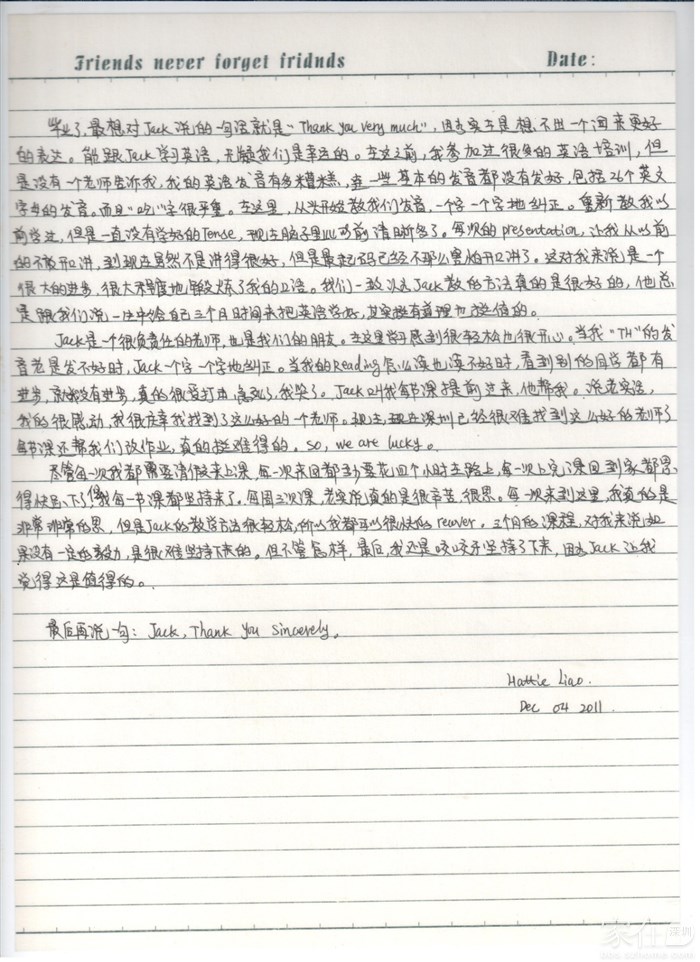 Friends never forget fridnds Date:
毕业了,最想对Jack说的一句话就是"Thank you very much",因为实在是想不出一个词来更好
的表达。能跟Jack学习英语,无疑我们是幸运的。在这之前,我参加过很多的英语培训,但
是没有一个老师告诉我,我的英语发音有多糟糕,连一些基本的发音都没有发好,包括26个英文
字母的发音。而且"吃"字很严重。在这里,从头开始教我们发音,一个字一个字地纠正。重新教我以
前学过,但是一直没有学好的Tense,现在脑子里比以前清晰多了。每次的presentation,让我从以前
的不敢开口讲,到现在虽然不是讲得很好,但是最起码已经不那么害怕开口讲了。这对我来说是一个
很大的进步,很大程度地锻炼了我的口语。我们一致认为Jack教的方法真的是很好的,他总
是跟我们说一生中给自己三个月时间来把英语学好,其实挺有道理也挺值的。
Jack是一个很负责任的老师,也是我们的朋友。在这里学习感到很轻松也很开心。当我"TH"的发
音老是发不好时,Jack一个字一个字地纠正。当我的Reading怎么读也读不好时,看到别的同学都有
进步,就我没有进步,真的很受打击,急死了,我哭了。Jack叫我每节课提前过来,他帮我。说老实话,
我的很感动,我很庆幸我找到了这么好的一个老师。现在,现在深圳已经很难找到这么好的老师了
每节课还帮我们改作业,真的挺难得的。so, we are lucky。
尽管每一次我都需要请假来上课,每一次来回都要花四个小时在路上,每一次上完课回到家都累
得快趴下了,但我每一节课都坚持来了。每周三次课,老实说真的是很辛苦,很累。每一次来到这里,我真的是
非常非常的累,但是Jack的教学方法很轻松,所以我都可以很快的recover。三个月的课程,对我来说如
果没有一定的毅力,是很难坚持下来的。但不管怎样,最后,我还是咬咬牙坚持了下来,因为Jack让我
觉得这是值得的。
最后再说一句:Jack, Thank you sincerely。
Hattie Liao.
Dec 04 2011.
家在深圳